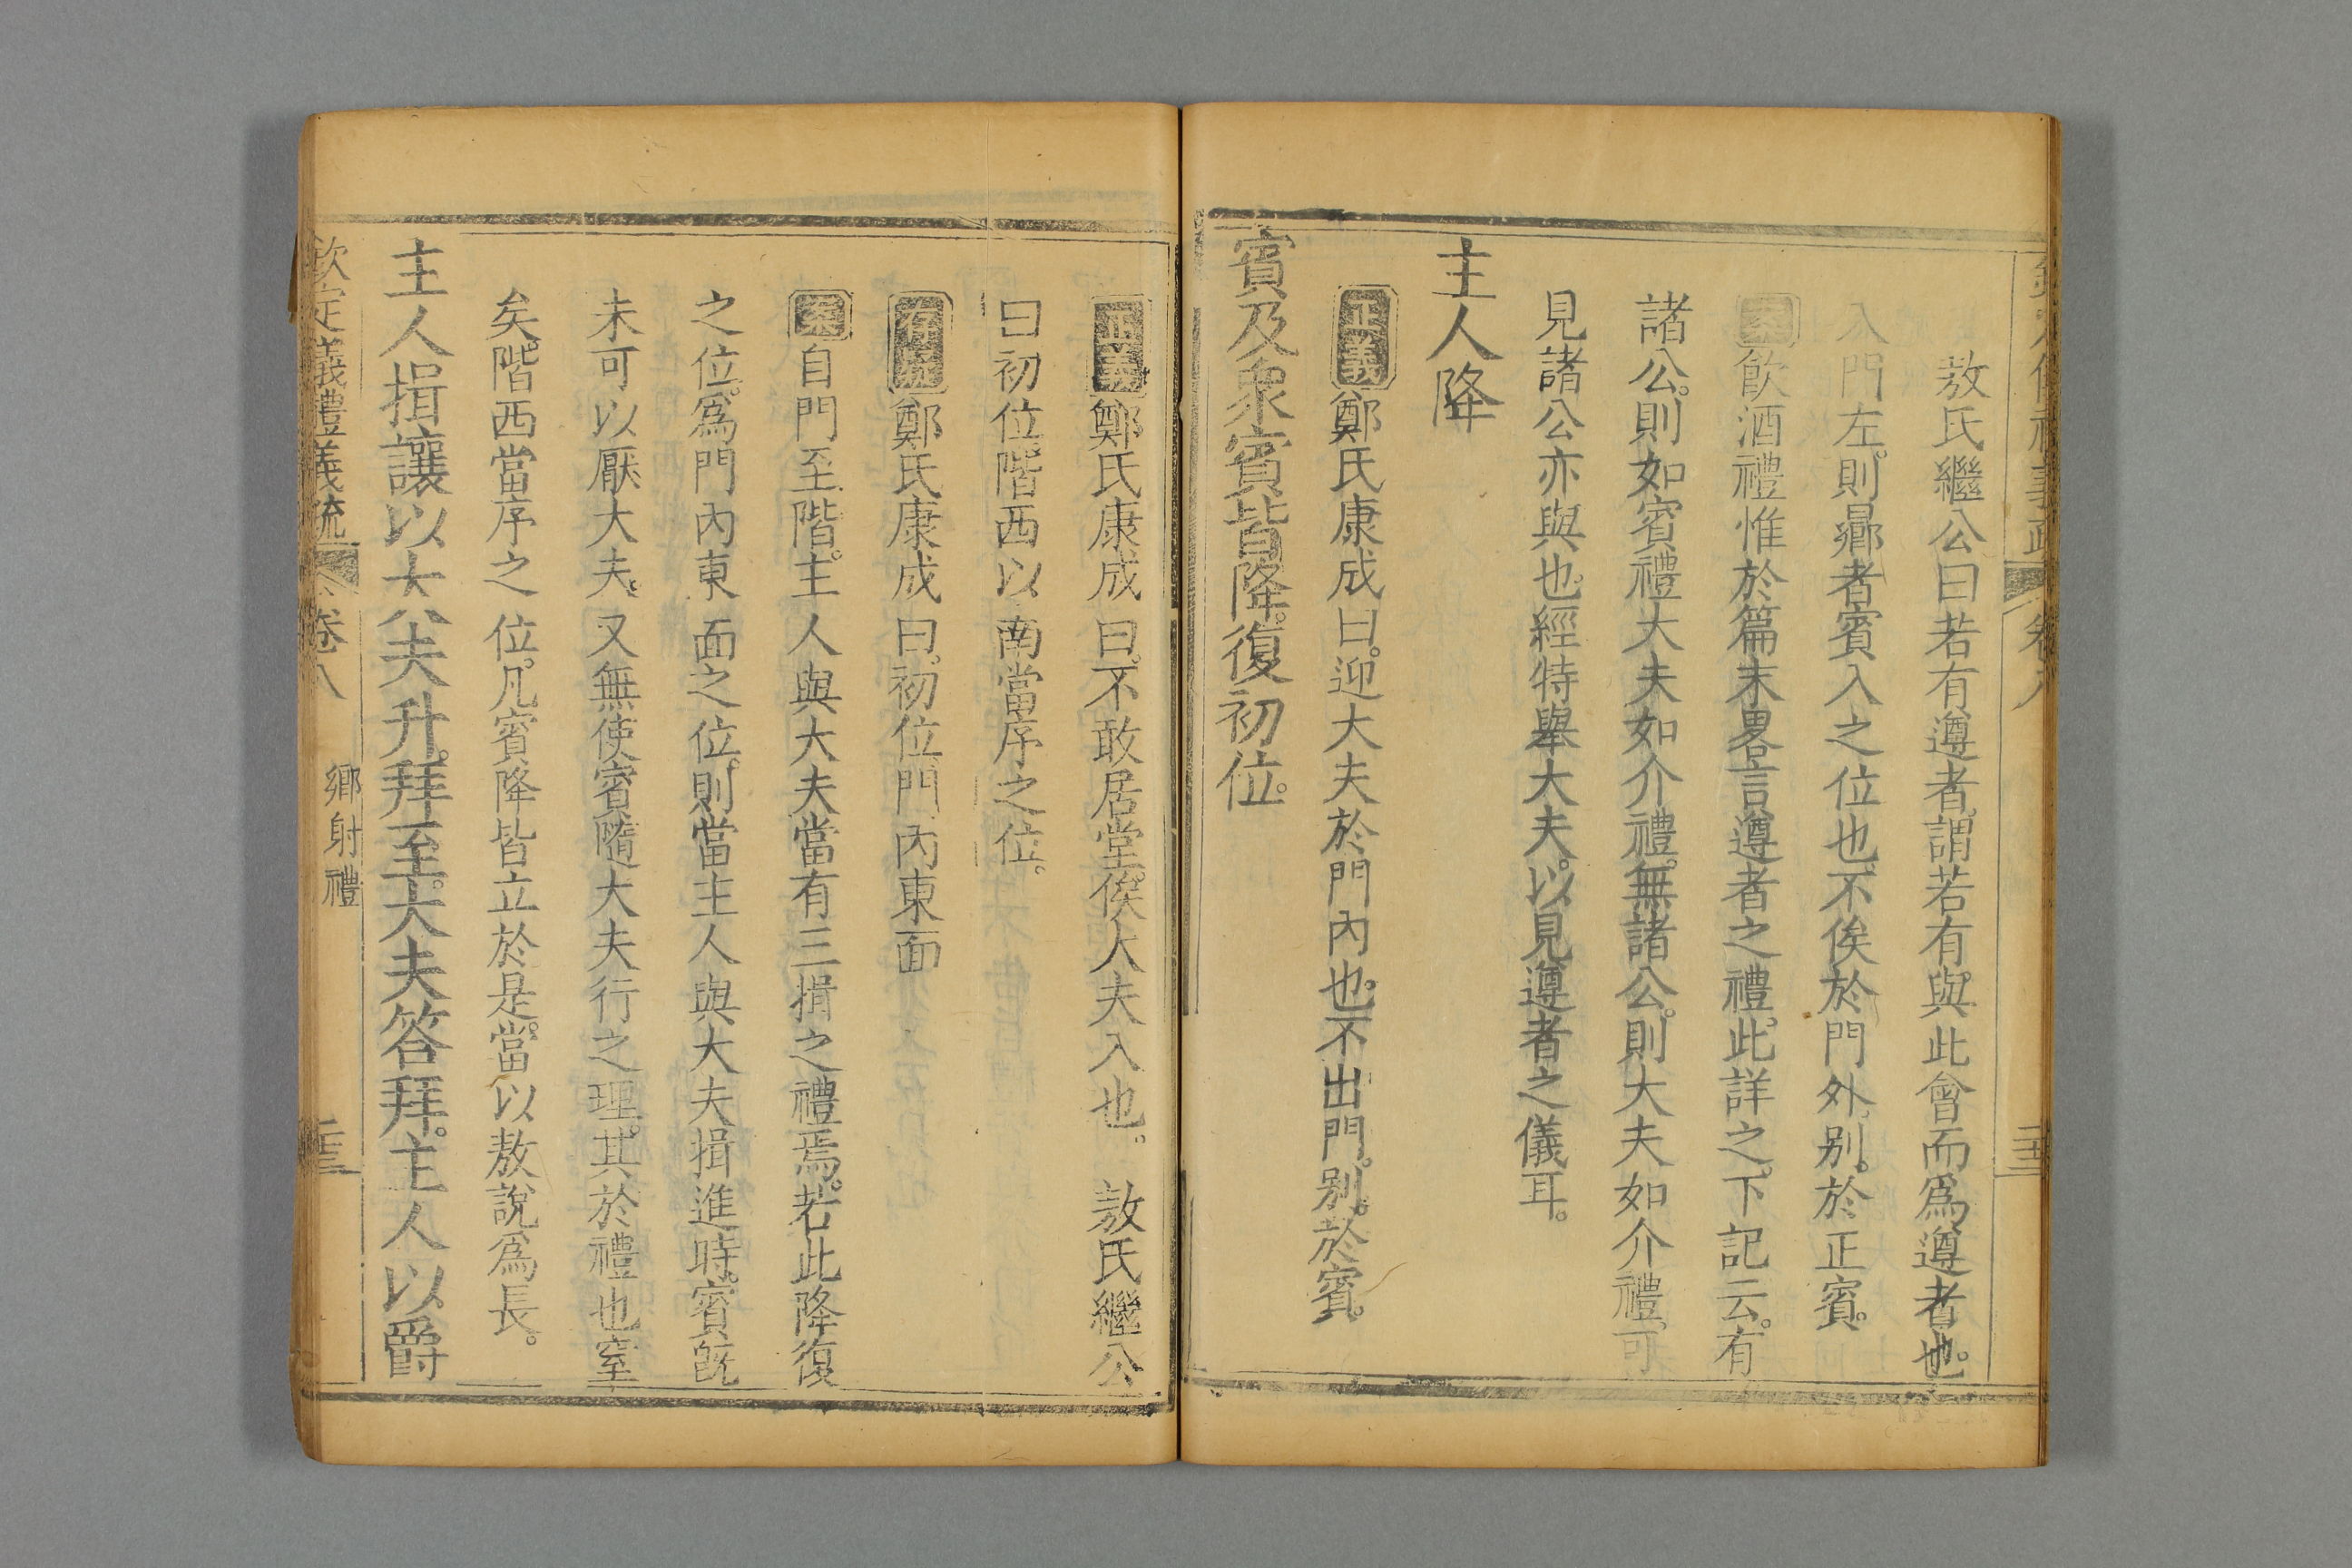 敖氏繼公曰若有遵者。謂若有與此會而爲遵者也。
入門左。則曏者賓入之位也、不俟於門外、别。於正賓。
案飲酒禮惟於篇末畧言遵者之禮。此詳之。下記云。有
諸公。則如賓禮大夫如介禮。無諸公。則大夫如介禮、可
見諸公亦與也、經特舉大夫。以見遵者之儀耳。
主人降
正義鄭氏康成曰。迎大夫於門內也。不出門。别。於賓。
賓及衆賓皆降。復初位。
正義鄭氏康成曰。不敢居堂。俟大夫入也。 敖氏繼公
曰初位。階西以南當序之位。
存疑鄭氏康成曰。初位門內東面
案自門至階。主人與大夫當有三揖之禮焉。若此降復
之位。爲門內東面之位。則當主人與大夫揖進時。賓旣
未可以厭大夫。又無使賓隨大夫行之理。其於禮也窒
矣。階西當序之位。凡賓降皆立於是。當以敖說爲長。
主人揖讓以大夫升。拜至。大夫答拜。主人以爵
欽定儀禮義疏 卷八 鄉射禮